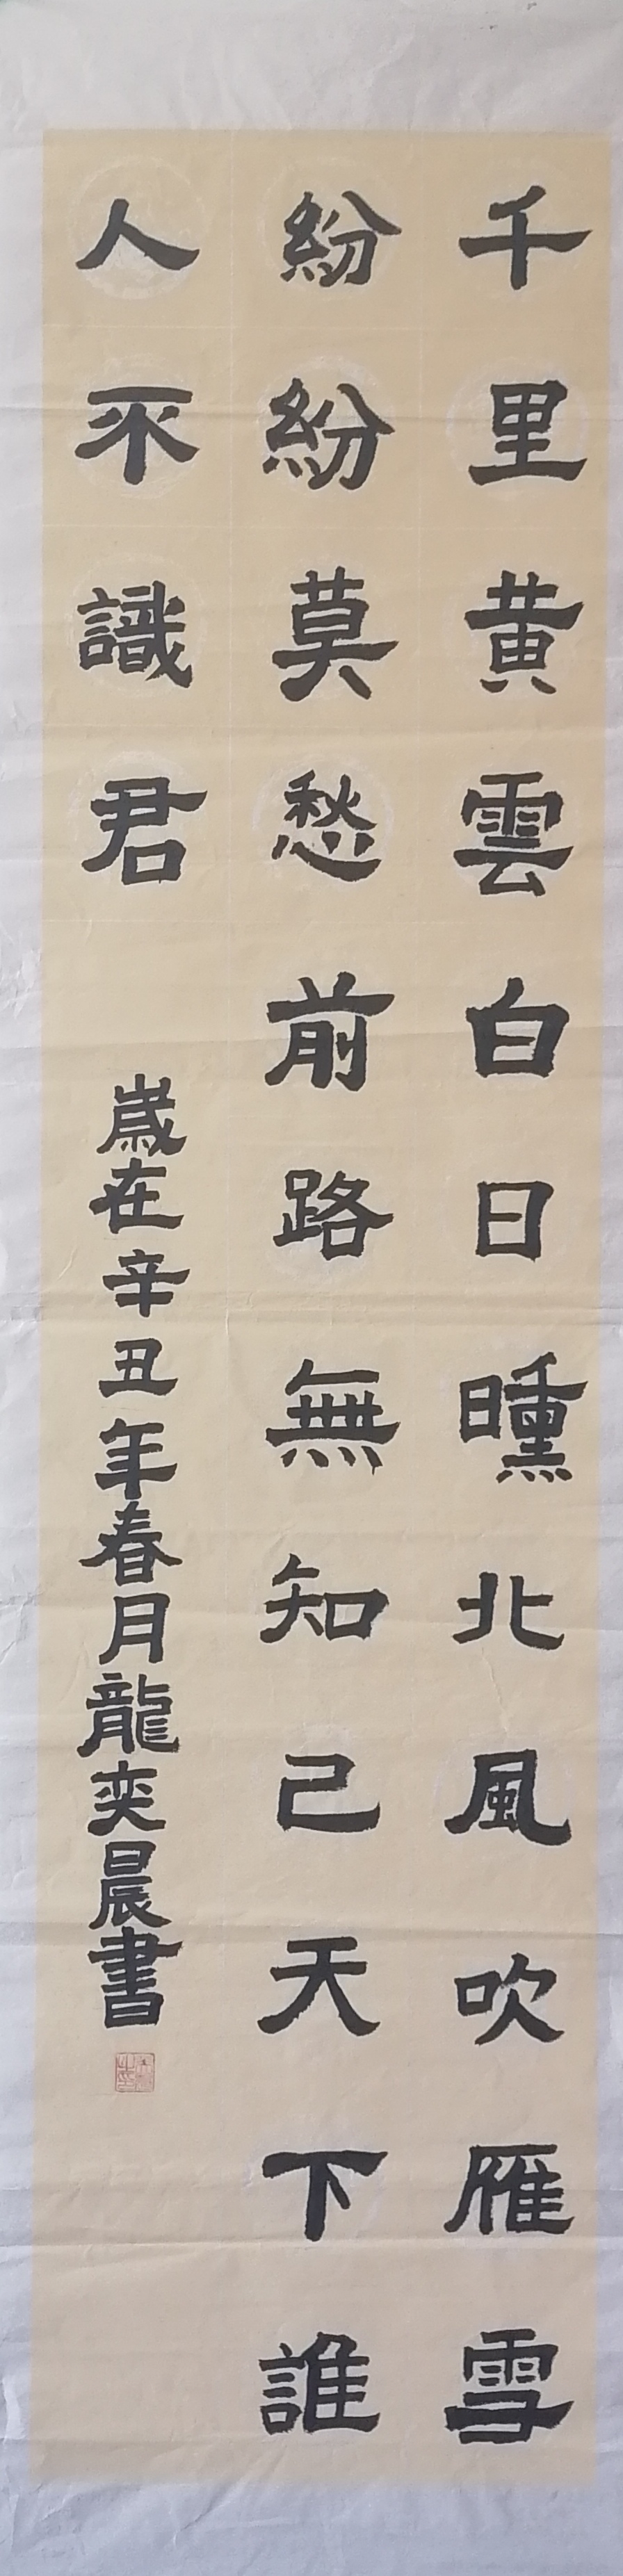 千里黄雲白日曛北風吹雁雪
紛紛莫愁前路無知己天下誰
人不識君
歲在辛丑年春月龍奕晨書